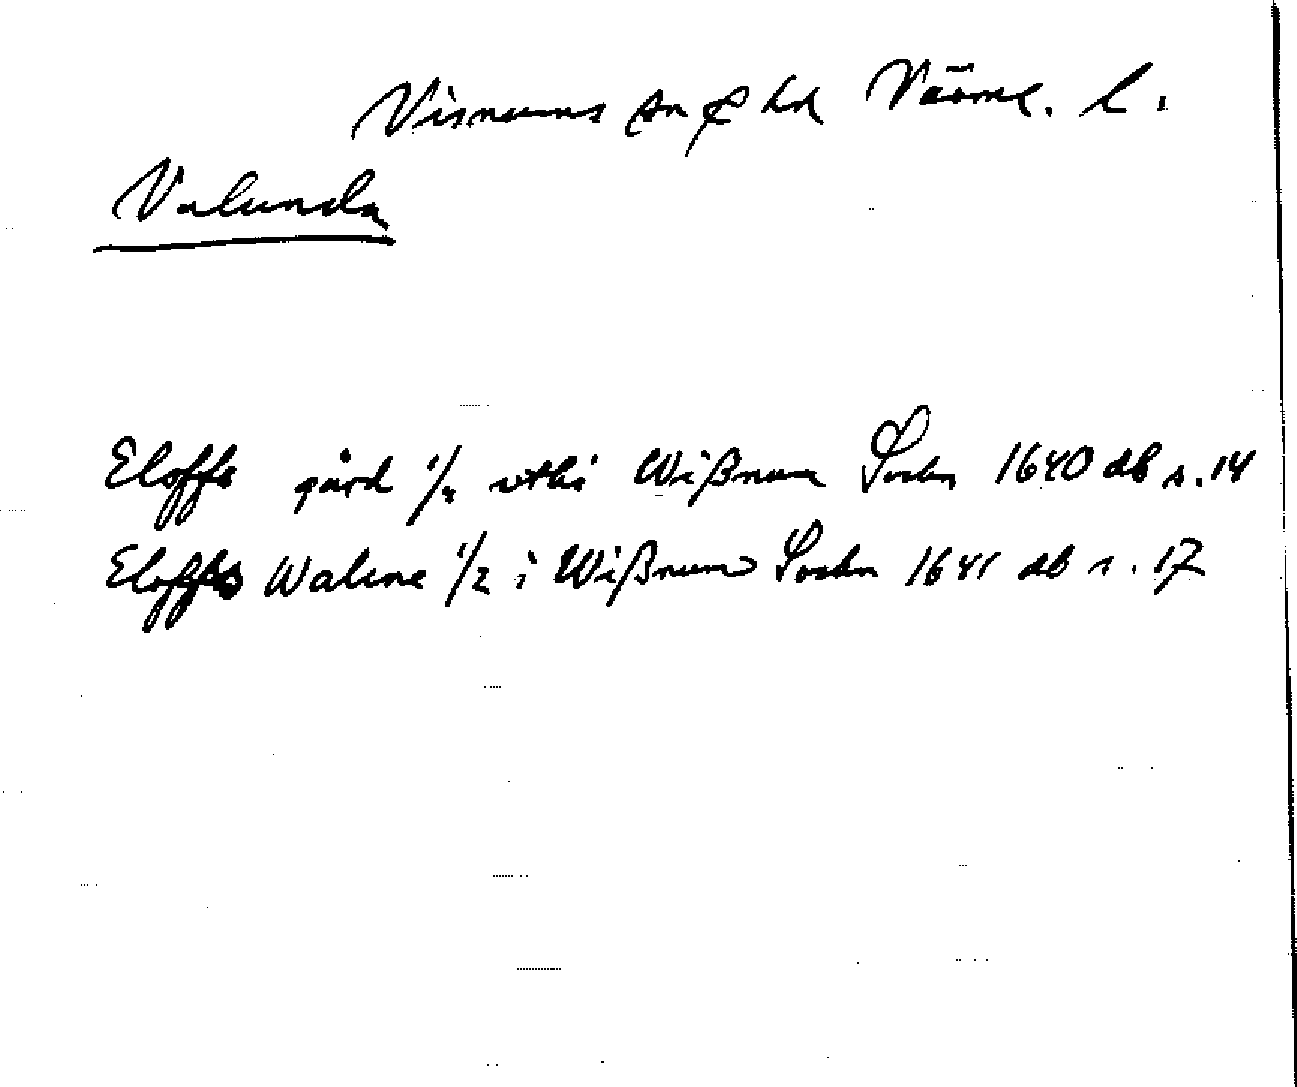 Visnums sn & hd Värml. l.
Valunda
Eloffs gård 1/2 vthi Wißnum Sochn 1640 db s. 14
Eloffs Walune 1/2 i Wißnum Sochn 1641 db s. 17